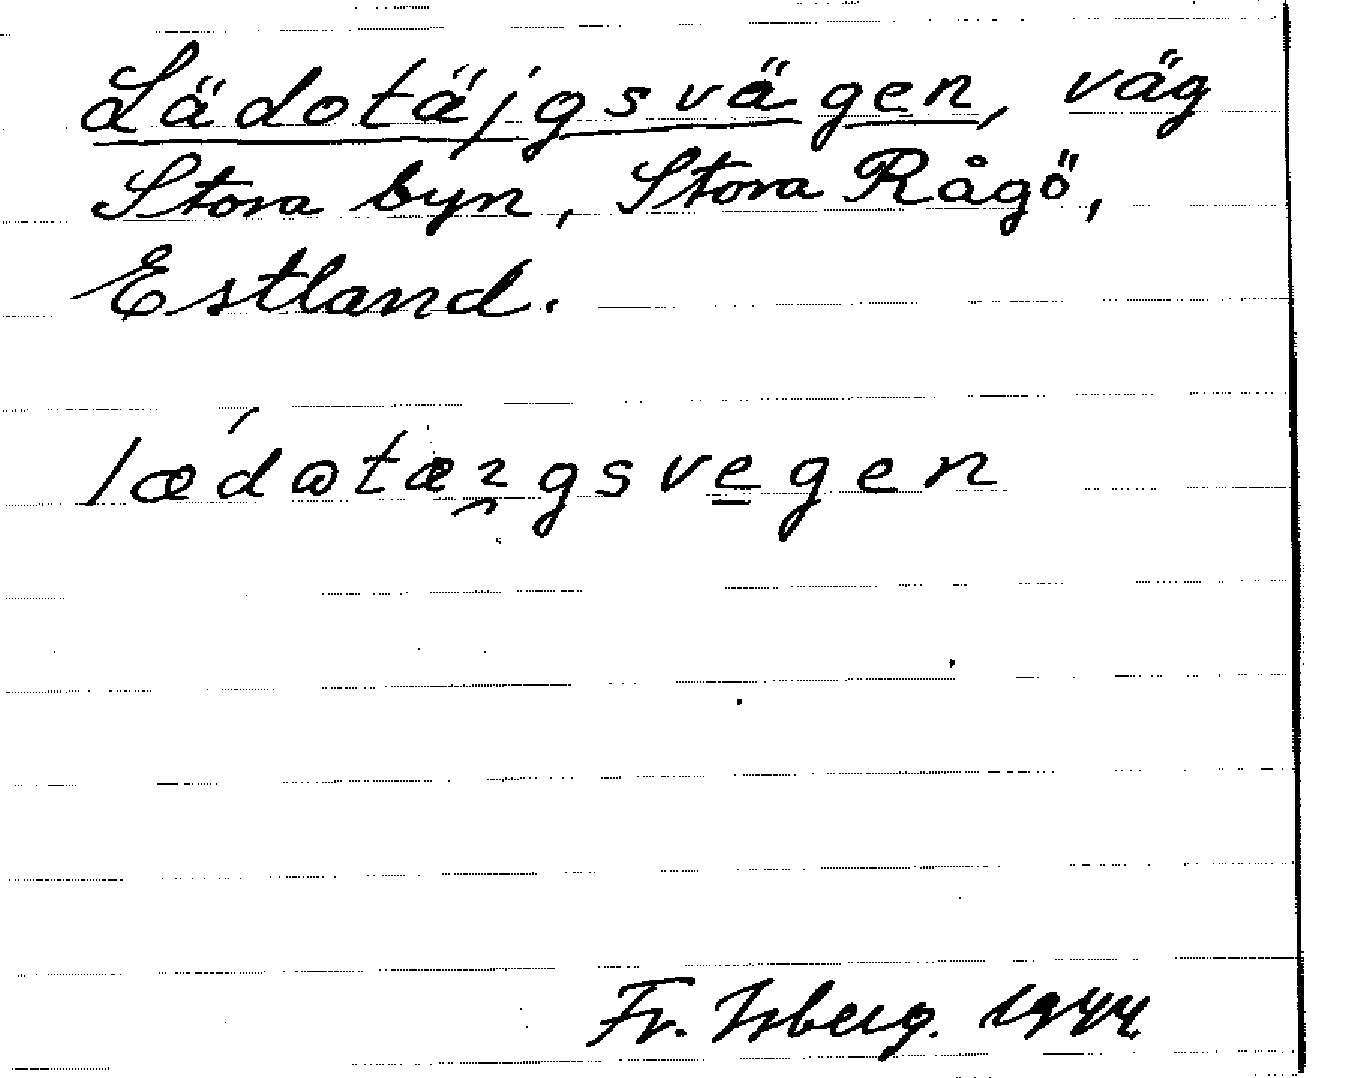 Lädotäjgsvägen, väg
Stora byn, Stora Rågö,
Estland.
lædωtæıgsvegen
Fr. Isberg. 1944